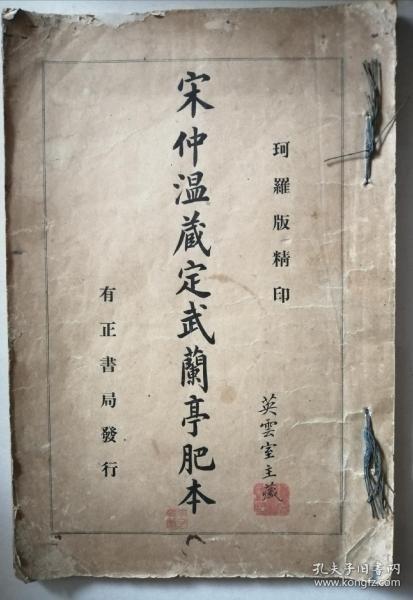 珂羅版精印
宋仲温蔵定武蘭亭肥本
有正書局發行
英雲室主藏
孔夫子旧书网
www.kongfz.com